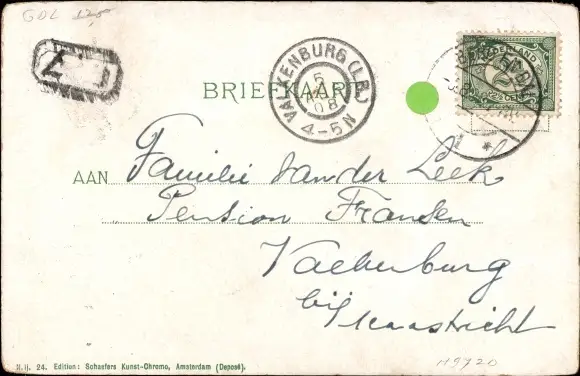 GDL 125
BRIEFKAART
VALKENBURG (L.B.)
5
08
4-5N
NEDERLAND
AAN Familie van der Leek
Pension Franken
Valkenburg
bij Maastricht
N.Ij. 24. Edition: Schaefers Kunst-Chromo, Amsterdam (Deposé).
M9720